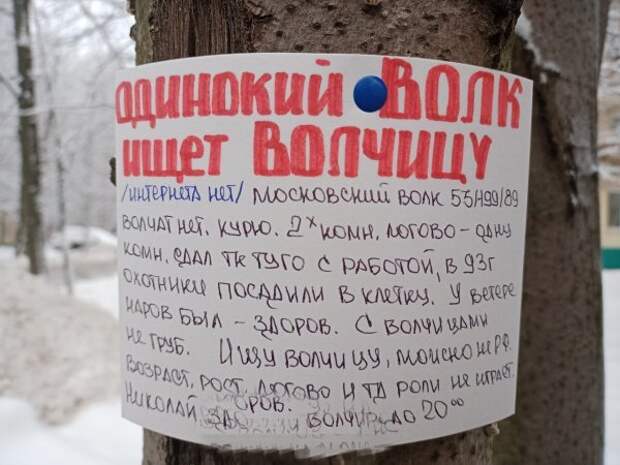 ОДИНОКИЙ ВОЛК
ИЩЕТ ВОЛЧИЦУ
/ИНТЕРНЕТА НЕТ/ МОСКОВСКИЙ ВОЛК 53/199/89
ВОЛЧАТ НЕТ. КУРЮ. 2Х КОМН. ЛОГОВО - ОДНУ
КОМН. СДАЛ ТК ТУГО С РАБОТОЙ, В 93Г
ОХОТНИКИ ПОСАДИЛИ В КЛЕТКУ. У ВЕТЕРЕ
НАРОВ БЫЛ - ЗДОРОВ. С ВОЛЧИЦАМИ
НЕ ГРУБ. ИЩУ ВОЛЧИЦУ, МОЖНО НЕ РФ.
ВОЗРАСТ, РОСТ, ЛОГОВО И ТД РОЛИ НЕ ИГРАЕТ.
НИКОЛАЙ, ЗДОРОВ. ДО 20⁰⁰